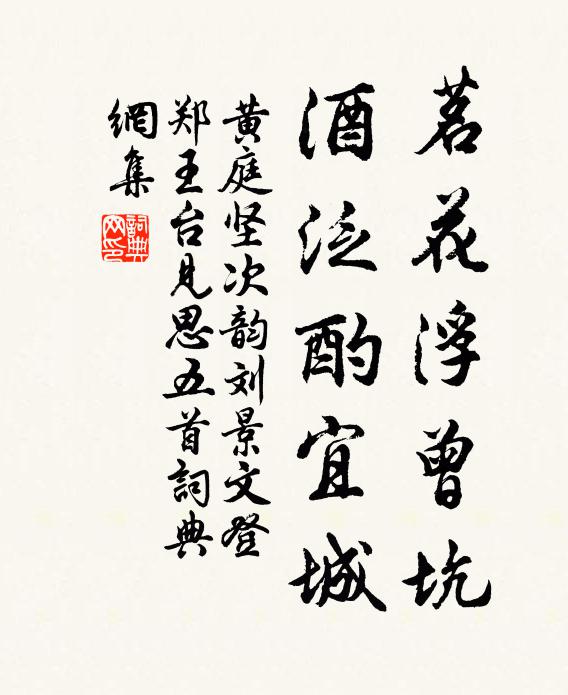 茗花浮曾坑
酒泛酌宜城
黄庭坚次韵刘景文登
郑王台见思五首詞典
網集
詞典
网印